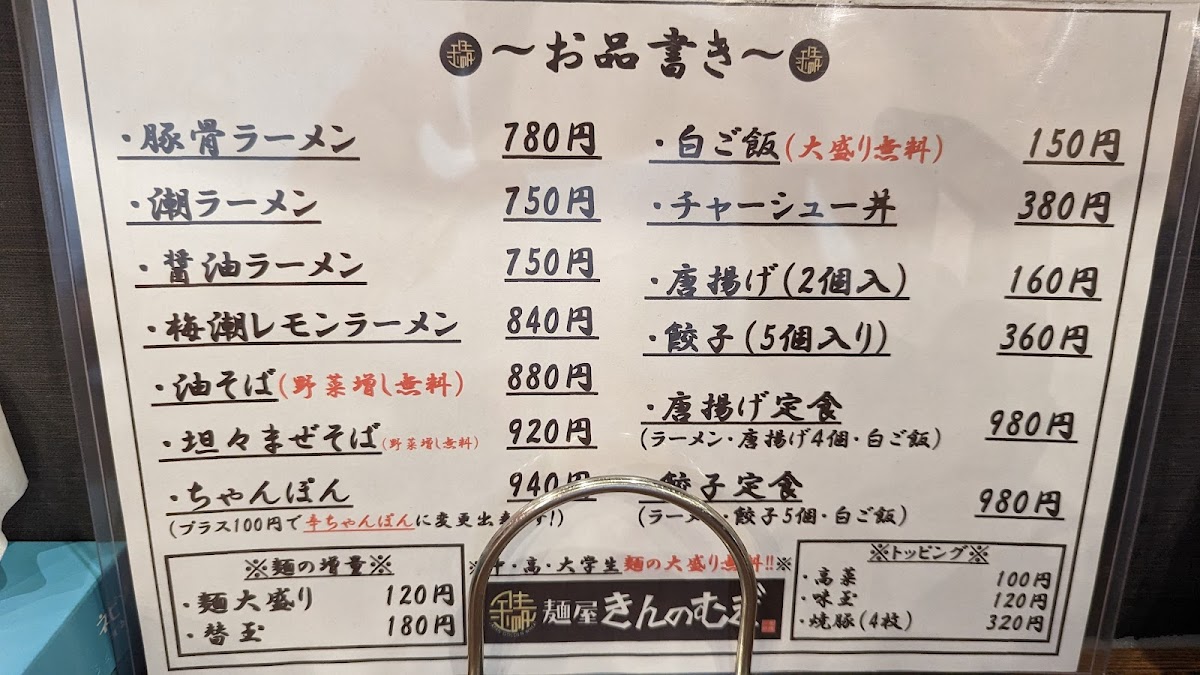 ~お品書き~
・豚骨ラーメン 780円
・潮ラーメン 750円
・醤油ラーメン 750円
・梅潮レモンラーメン 840円
・油そば(野菜増し無料) 880円
・坦々まぜそば(野菜増し無料) 920円
・ちゃんぽん 940円
(プラス100円で辛ちゃんぽんに変更出 す!)
※麺の増量※
・麺大盛り 120円
・替玉 180円
・白ご飯(大盛り無料) 150円
・チャーシュー丼 380円
・唐揚げ(2個入) 160円
・餃子(5個入り) 360円
・唐揚げ定食 980円
(ラーメン・唐揚げ4個・白ご飯)
餃子定食 980円
(ラーメン・餃子5個・白ご飯)
※中・高・大学生麺の大盛り無料!!※
麺屋 きんのむぎ
※トッピング※
・高菜 100円
・味玉 120円
・焼豚(4枚) 320円